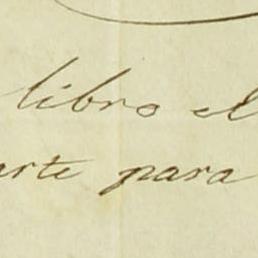 libro el
arte para